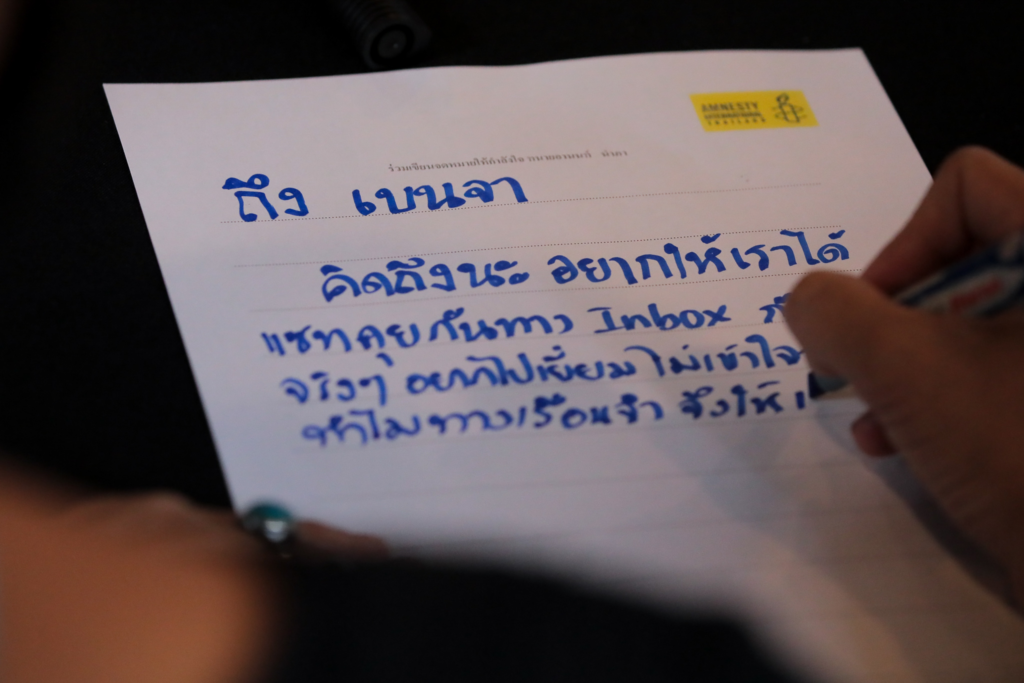 AMNESTY
INTERNATIONAL
THAILAND
ร่วมเขียนจดหมายให้กำลังใจ
ถึง เบนจา
คิดถึงนะ อยากให้เราได้
แชทคุยกันทาง Inbox
จริงๆ อยากไปเยี่ยม ไม่เข้าใจ
ทำไมทางเรือนจำ จึงให้